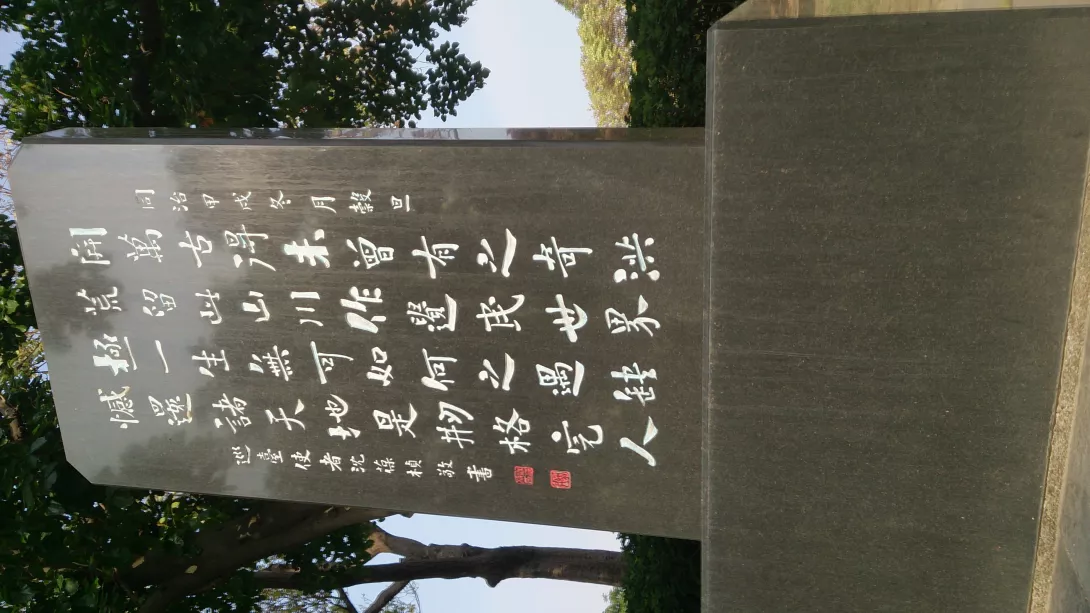 同治甲戌冬月穀旦
開萬古得未曾有之奇洪
荒留此山川作遺民世界
極一生無可如何之遇缺
憾還諸天地是刱格完人
巡臺使者沈葆楨敬書